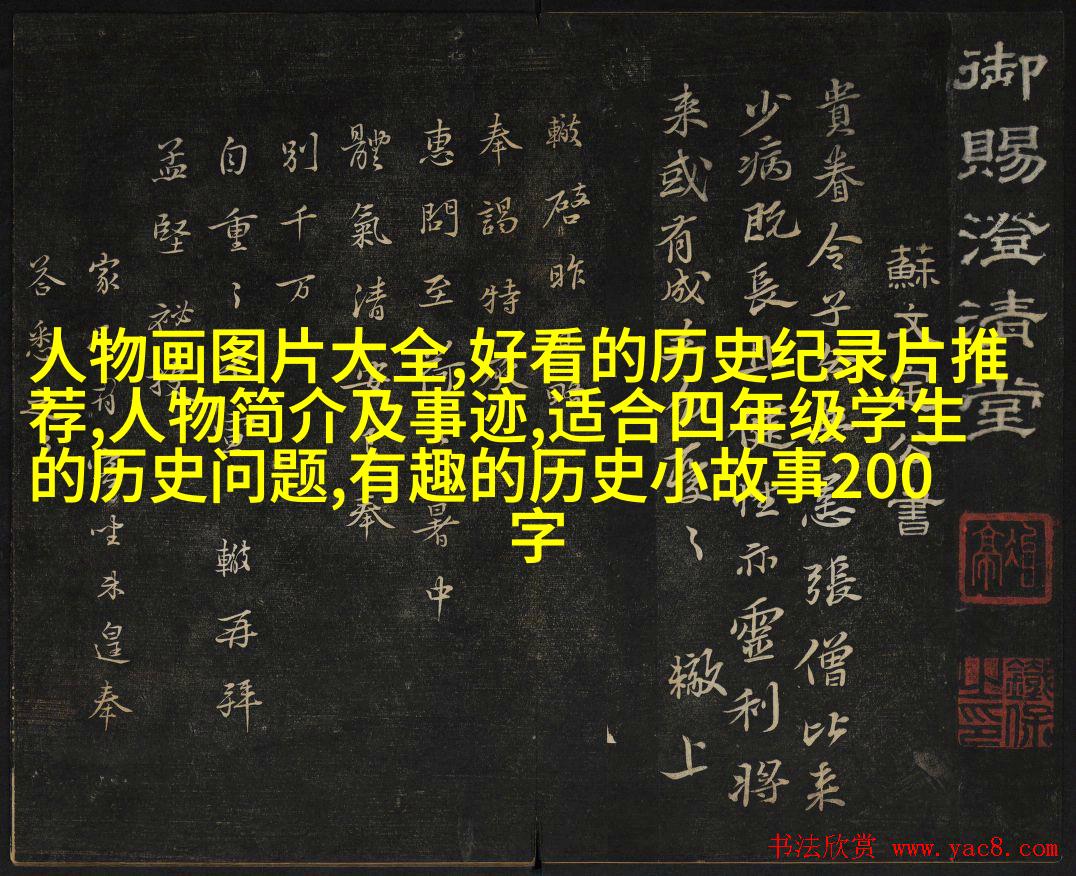 人物画图片大全,好看的历史纪录片推
荐,人物简介及事迹,适合四年级学生
的历史问题,有趣的历史小故事200
字
御賜澄清堂
蘇文公書
貴眷令子張僧比来
少病既長性亦靈利将
来或有成轍上
轍啓昨
奉謁特
惠問至暑中
體氣清奉
別千万
自重轍再拜
孟堅秘
家坐未遑奉
答悉
书法欣赏 www.yac8.com